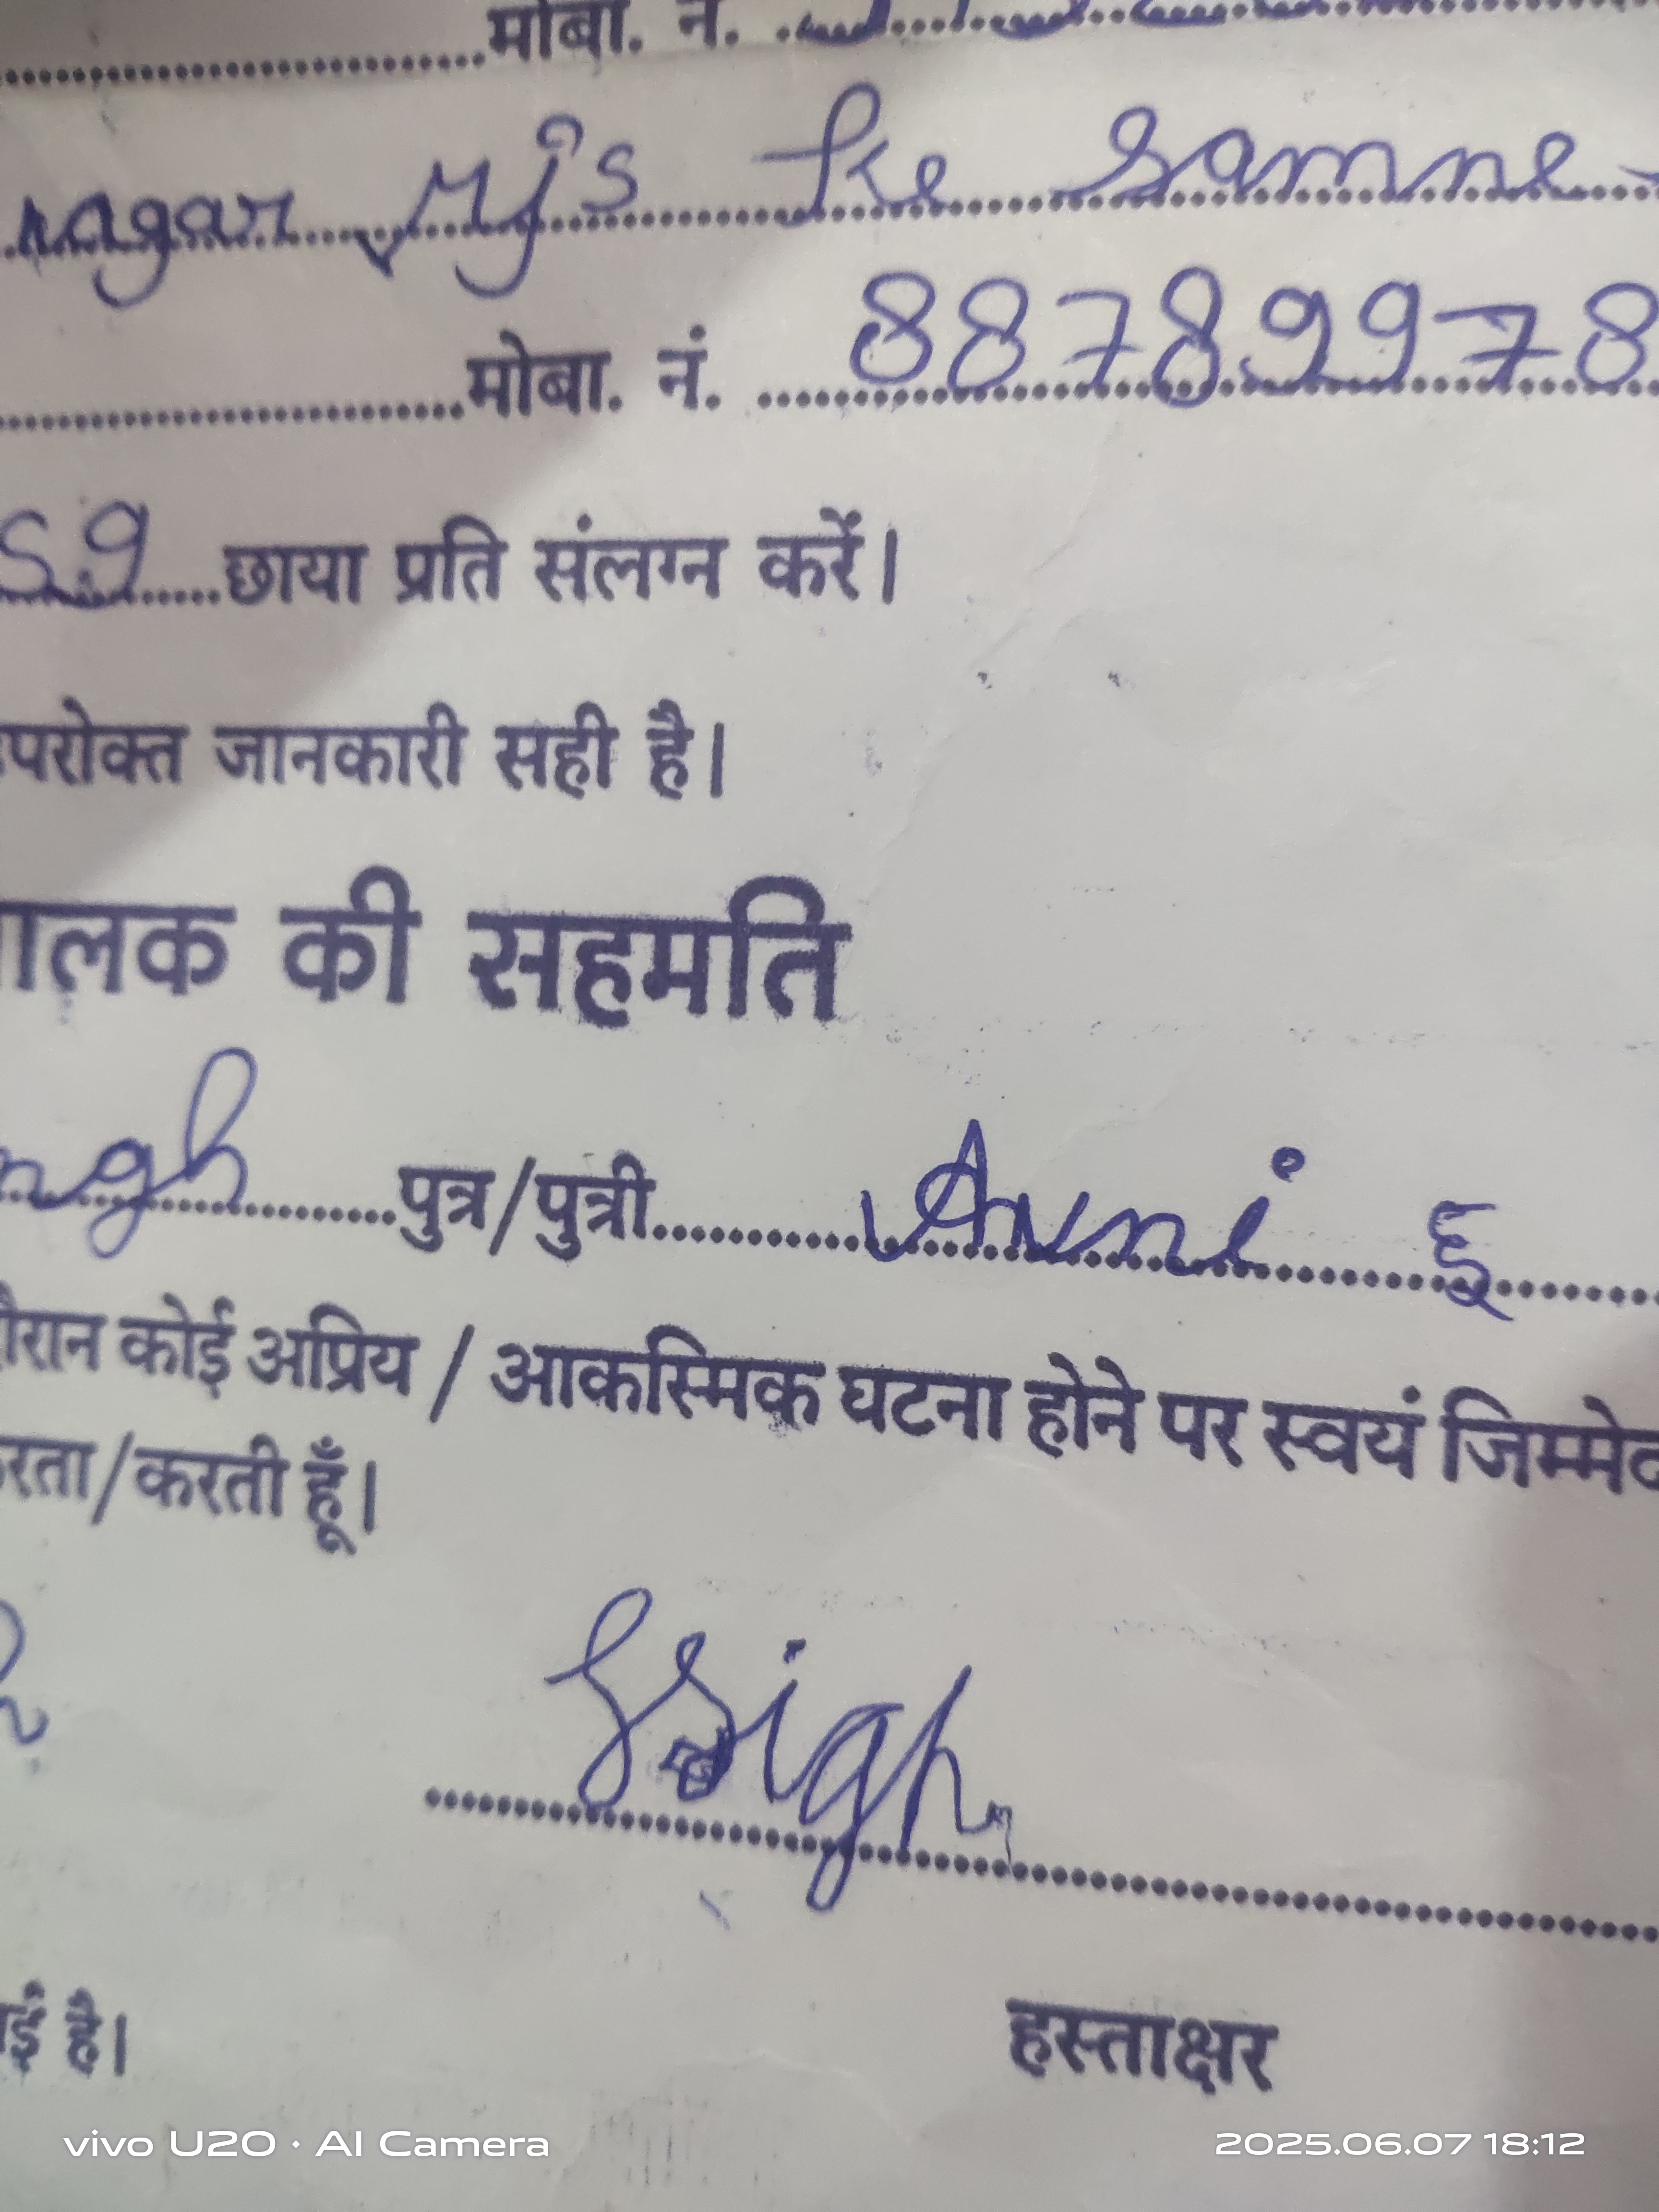 मोबा. नं.
nagar Mjs ke samne
मोबा. नं. 88789978
59 छाया प्रति संलग्न करें।
उपरोक्त जानकारी सही है।
ालक की सहमति
ngh पुत्र/पुत्री Avni
दौरान कोई अप्रिय / आकस्मिक घटना होने पर स्वयं जिम्मेद
करता/करती हूँ।
हस्ताक्षर
ई है।
vivo U20 · AI Camera 2025.06.07 18:12